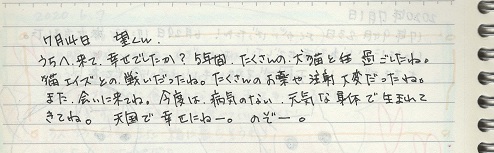 7月14日 望くん
うちへ来て、幸せでしたか？5年間、たくさんの犬猫と生 過ごしたね。
猫エイズとの、戦いだったね。たくさんのお薬や注射大変だったね。
また、会いに来てね。今度は、病気のない、元気な身体で生まれて
きてね。 天国で幸せにねー。 のぞー。